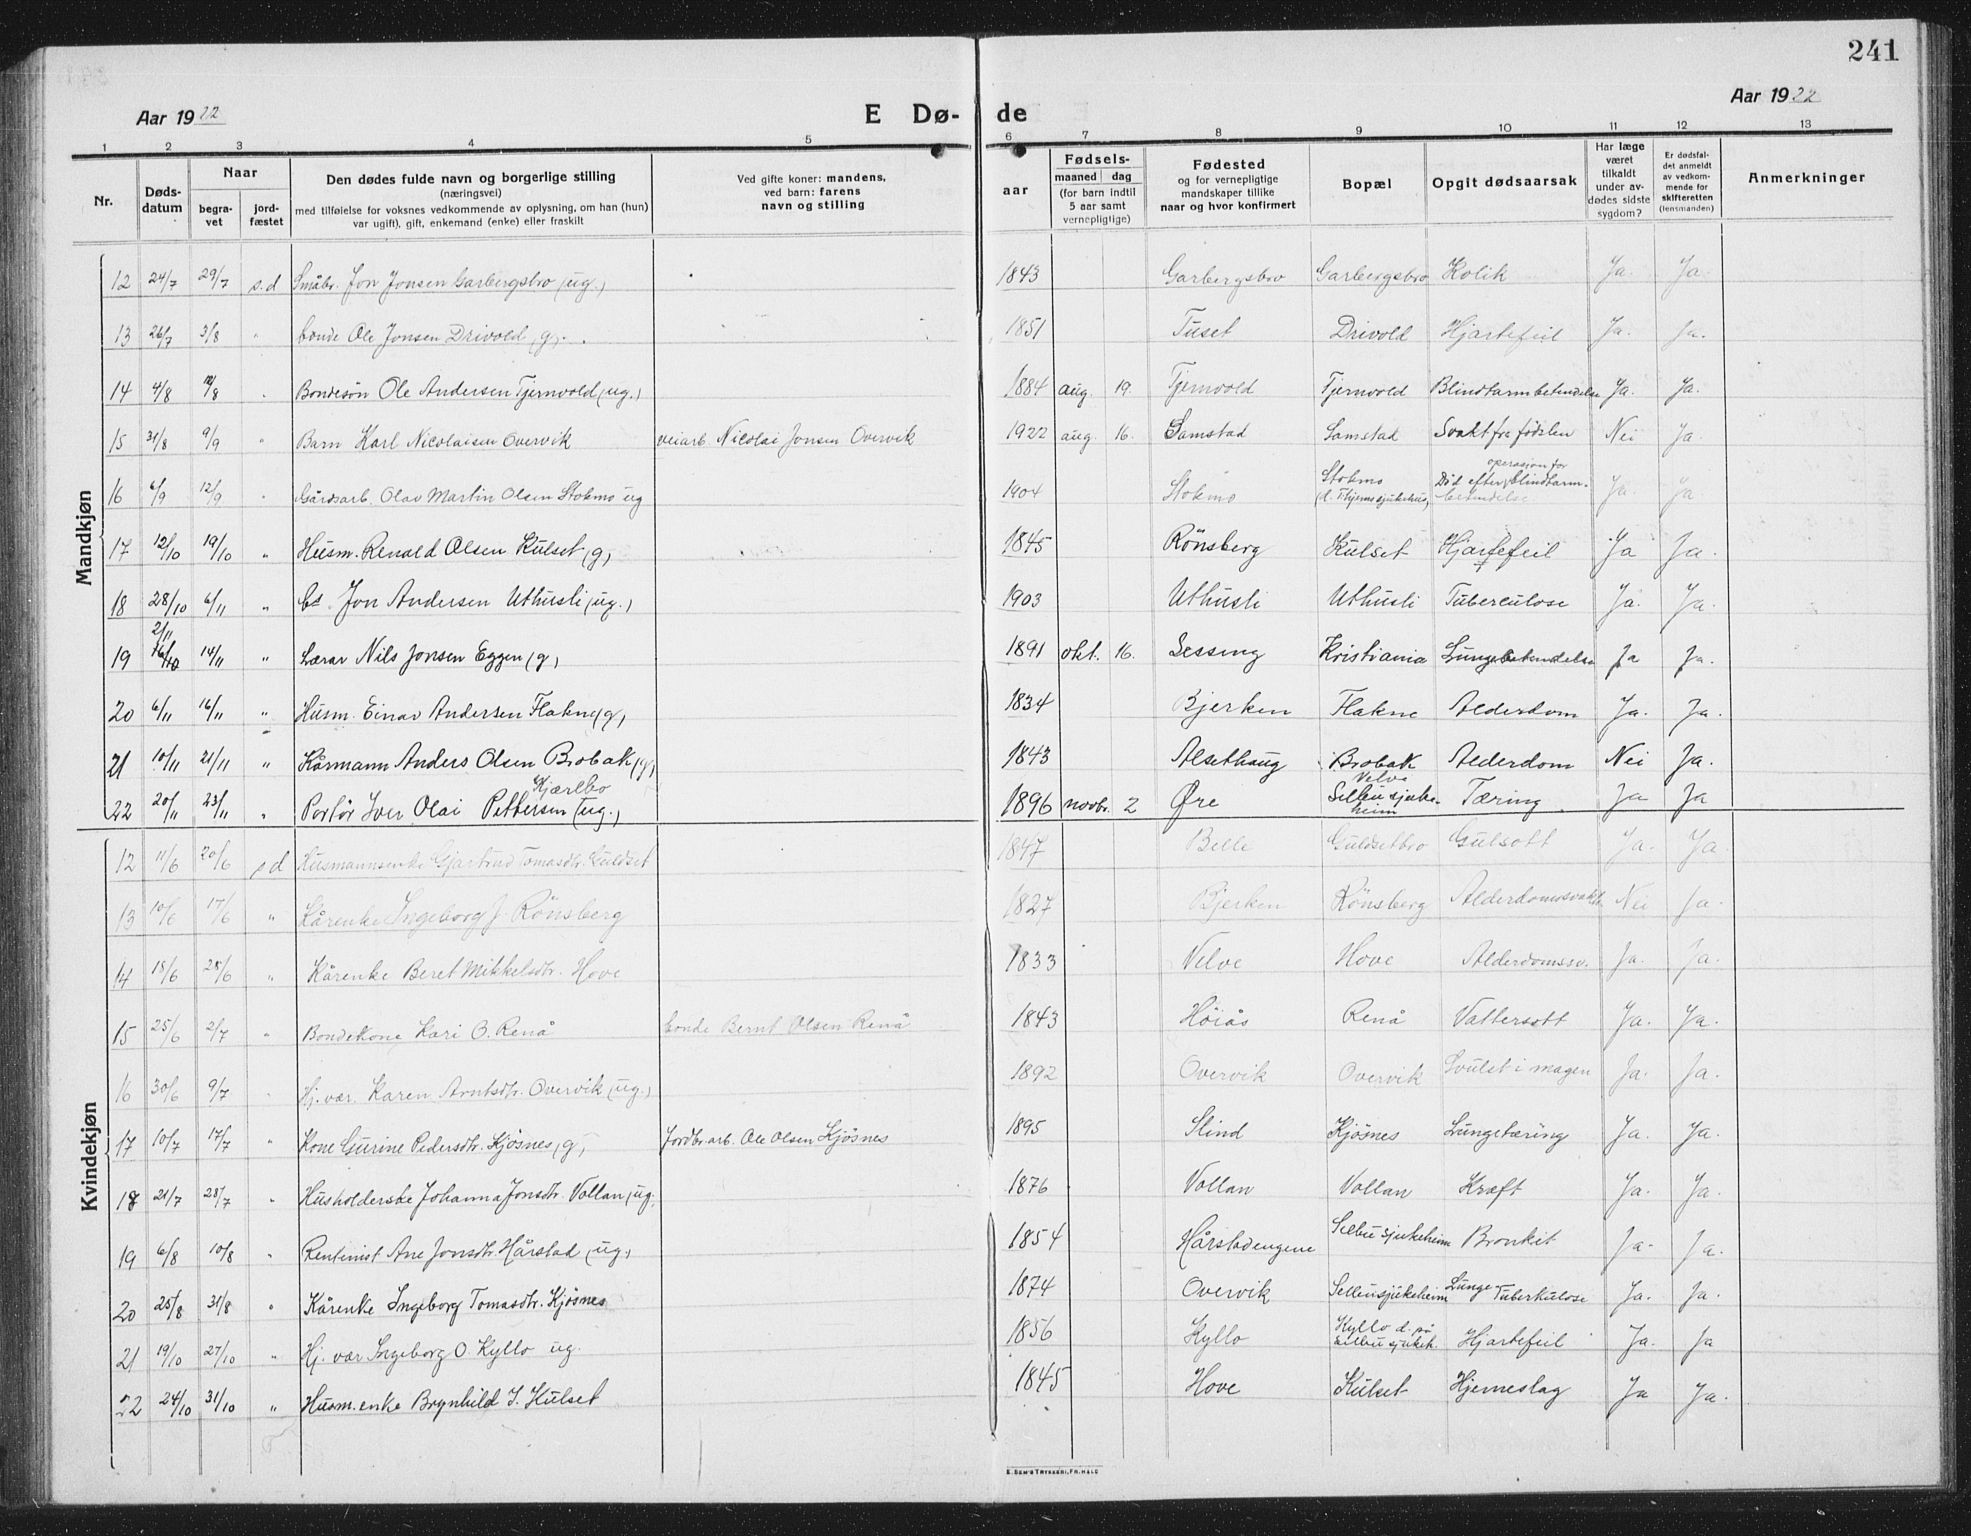 241
Aar 1922 E Dø- de Aar 1922
1 2 3 4 5 6 7 8 9 10 11 12 13
Nr. Døds-datum Naar begra-vet jord-fæstet Den dødes fulde navn og borgerlige stilling (næringsvei) med tilføielse for voksnes vedkommende av oplysning, om han (hun) var ugift), gift, enkemand (enke) eller fraskilt Ved gifte koner: mandens, ved barn: farens navn og stilling aar Fødsels- maaned dag (for barn indtil 5 aar samt vernepligtige) Fødested og for vernepligtige mandskaper tillike naar og hvor konfirmert Bopæl Opgit dødsaarsak Har læge været tilkaldt under av-dødes sidste sygdom? Er dødsfal-det anmeldt av vedkom-mende for skifteretten (lensmanden) Anmerkninger
Mandkjøn
12 24/7 29/7 s.d Småbr. Jon Jonsen Garbergsbro (ug.) 1843 Garbergsbro Garbergsbro Kolik Ja. Ja.
13 26/7 3/8 " bonde Ole Jonsen Drivold (g). 1851 Tuset Drivold Hjartefeil Ja. Ja.
14 4/8 12/8 " Bondesøn Ole Andersen Tjernvold (ug.) 1884 aug. 19. Tjernvold Tjernvold Blindtarmbetendelse Ja. Ja.
15 31/8 9/9 " Barn Karl Nicolaisen Overvik veiarb. Nicolai Jonsen Overvik 1922 aug. 16. Samstad Samstad Svakt fra fødslen Nei Ja.
16 6/9 12/9 " Gårdsarb. Olav Martin Olsen Stokmo ug 1904 Stokmo Stokmo (d. Thjems sjukehus) Død efter operasjon for blindtarm-betendelse Ja. Ja.
17 12/10 19/10 " Husm. Renald Olsen Kulset (g) 1845 Rönsberg Kulset Hjartefeil Ja Ja.
18 28/10 6/11 " Jon Andersen Uthusli (ug.) 1903 Uthusli Uthusli Tuberculose Ja. Ja.
19 2/11 14/11 " Lærar Nils Jonsen Eggen (g) 1891 okt. 16. Sessing Kristiania Lungebetendelse Ja Ja.
20 6/11 16/11 " Husm. Einar Andersen Flakne (g) 1834 Bjerken Flakne Alderdom Ja. Ja.
21 10/11 21/11 " Kårmann Anders Olsen Brobak (g) 1843 Alsethaug Brobak Alderdom Nei Ja.
22 20/11 23/11 " Portör Iver Olai Pettersen Kjærlbo (ug.) 1896 novbr. 2 Øre Velve Selbu sjuke-heim Tæring Ja Ja
Kvindekjøn
12 11/6 20/6 s d Husmannsenke Gjartrud Tomasdtr. Guldset 1847 Belle Guldsetbro Gulsott Ja. Ja
13 10/6 17/6 " Kårenke Ingeborg J. Rönsberg 1827 Bjerken Rönsberg Alderdomssvakhet Nei Ja.
14 18/6 28/6 " Kårenke Beret Mikkelsdtr. Hove 1833 Velve Hove Alderdomssv. Ja. Ja.
15 25/6 2/7 " Bondekone Kari O. Renå bonde Bernt Olsen Renå 1843 Höiås Renå Vattersott Ja. Ja.
16 30/6 9/7 " Hj. vær. Karen Arntsdtr. Overvik (ug.) 1892 Overvik Overvik Svulst i magen Ja. Ja.
17 10/7 17/7 " Kone Gurine Pedersdtr. Kjösnes (g) Jordbr.arb. Ole Olsen Kjösnes 1895 Slind Kjösnes Lungetæring Ja. Ja.
18 21/7 28/7 " Husholderske Johanna Jonsdtr. Vollan (ug. 1876 Vollan Vollan Kræft Ja. Ja.
19 6/8 10/8 " Rentenist Ane Jonsdtr. Hårstad (ug) 1854 Hårstadengene Selbu sjukeheim Bronkit Ja. Ja.
20 25/8 31/8 " Kårenke Ingeborg Tomasdtr. Kjösnes 1874 Overvik Selbu sjukeheim Lunge-Tuberkulose Ja. Ja.
21 19/10 27/10 " Hj. vær Ingeborg O. Kyllo ug. 1856 Kyllo Kyllo d. på Selbu sjukeh. Hjartefeil Ja. Ja
22 24/10 31/10 " Husm.enke Brynhild J. Kulset 1845 Hove Kulset Hjerneslag Ja Ja.
E. SEM'S TRYKKERI, FR.HALD